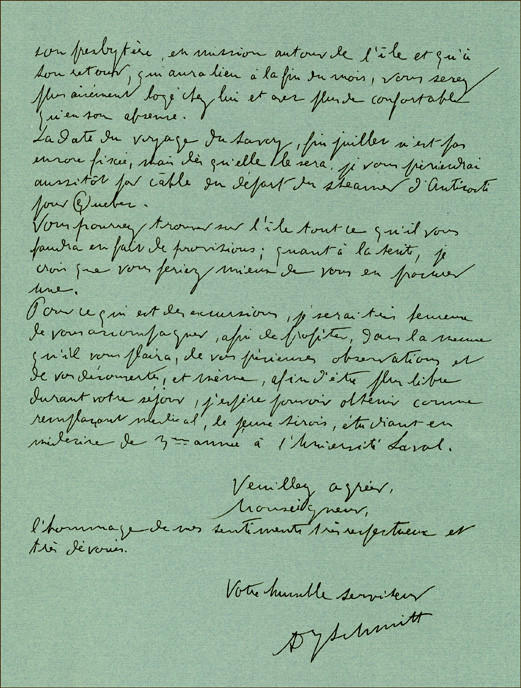 son presbytère, en mission autour de l'île et qu'à
son retour, qui aura lieu à la fin du mois, vous serez
plus aisément logé chez lui et avec plus de confortable
qu'en son absence.
La date du voyage du Savoy, fin juillet n'est pas
encore fixée, mais dès qu'elle le sera, je vous préviendrai
aussitôt par câble du départ du steamer d'Anticosti
pour Québec.
Vous pourrez trouver sur l'île tout ce qu'il vous
faudra en fait de provisions; quant à la tente, je
crois que vous feriez mieux de vous en procurer
une.
Pour ce qui est des excursions, je serai très heureux
de vous accompagner, afin de profiter, dans la mesure
qu'il vous plaira, de vos précieuses observations et
de vos découvertes, et même, afin d'être plus libre
durant votre séjour, j'espère pouvoir obtenir comme
remplaçant médical, le jeune Sirois, étudiant en
médecine de 3me année à l'Université Laval.
Veuillez agréer,
Monseigneur,
l'hommage de mes sentiments très respectueux et
très dévoués.
Votre humble serviteur
Schmitt